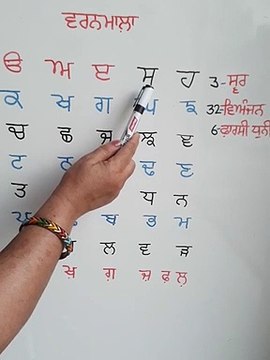 ਵਰਨਮਾਲਾ
ੳ ਅ ੲ ਸ ਹ 3-ਸ੍ਵਰ
ਕ ਖ ਗ ਘ ਙ 32-ਵਿਅੰਜਨ
ਚ ਛ ਜ ਝ ਞ 6-ਫ਼ਾਰਸੀ ਧੁਨੀ
ਟ ਢ ਣ
ਤ ਧ ਨ
ਬ ਭ ਮ
ਲ ਵ ੜ
ਖ਼ ਗ਼ ਜ਼ ਫ਼ ਲ਼